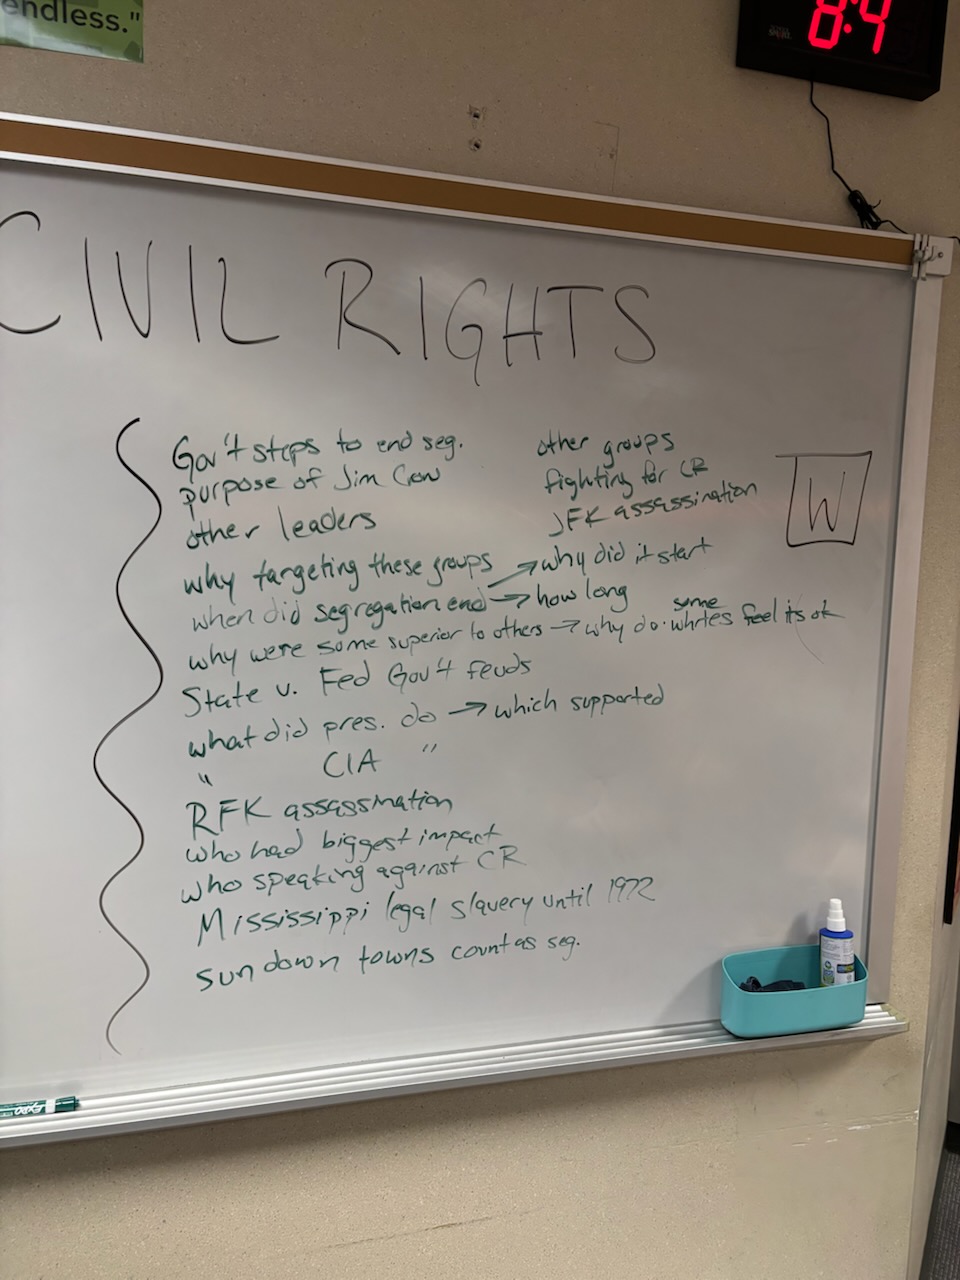 endless."
8:4
CIVIL RIGHTS
Gov't steps to end seg.
purpose of Jim Crow
other leaders
other groups
fighting for CR
JFK assassination
W
why targeting these groups
when did segregation end → why did it start
→ how long
why were some superior to others → why do some whites feel its ok
State v. Fed Gov't feuds
what did pres. do → which supported
" CIA "
RFK assassination
who had biggest impact
who speaking against CR
Mississippi legal slavery until 1972
sundown towns count as seg.
EXPO